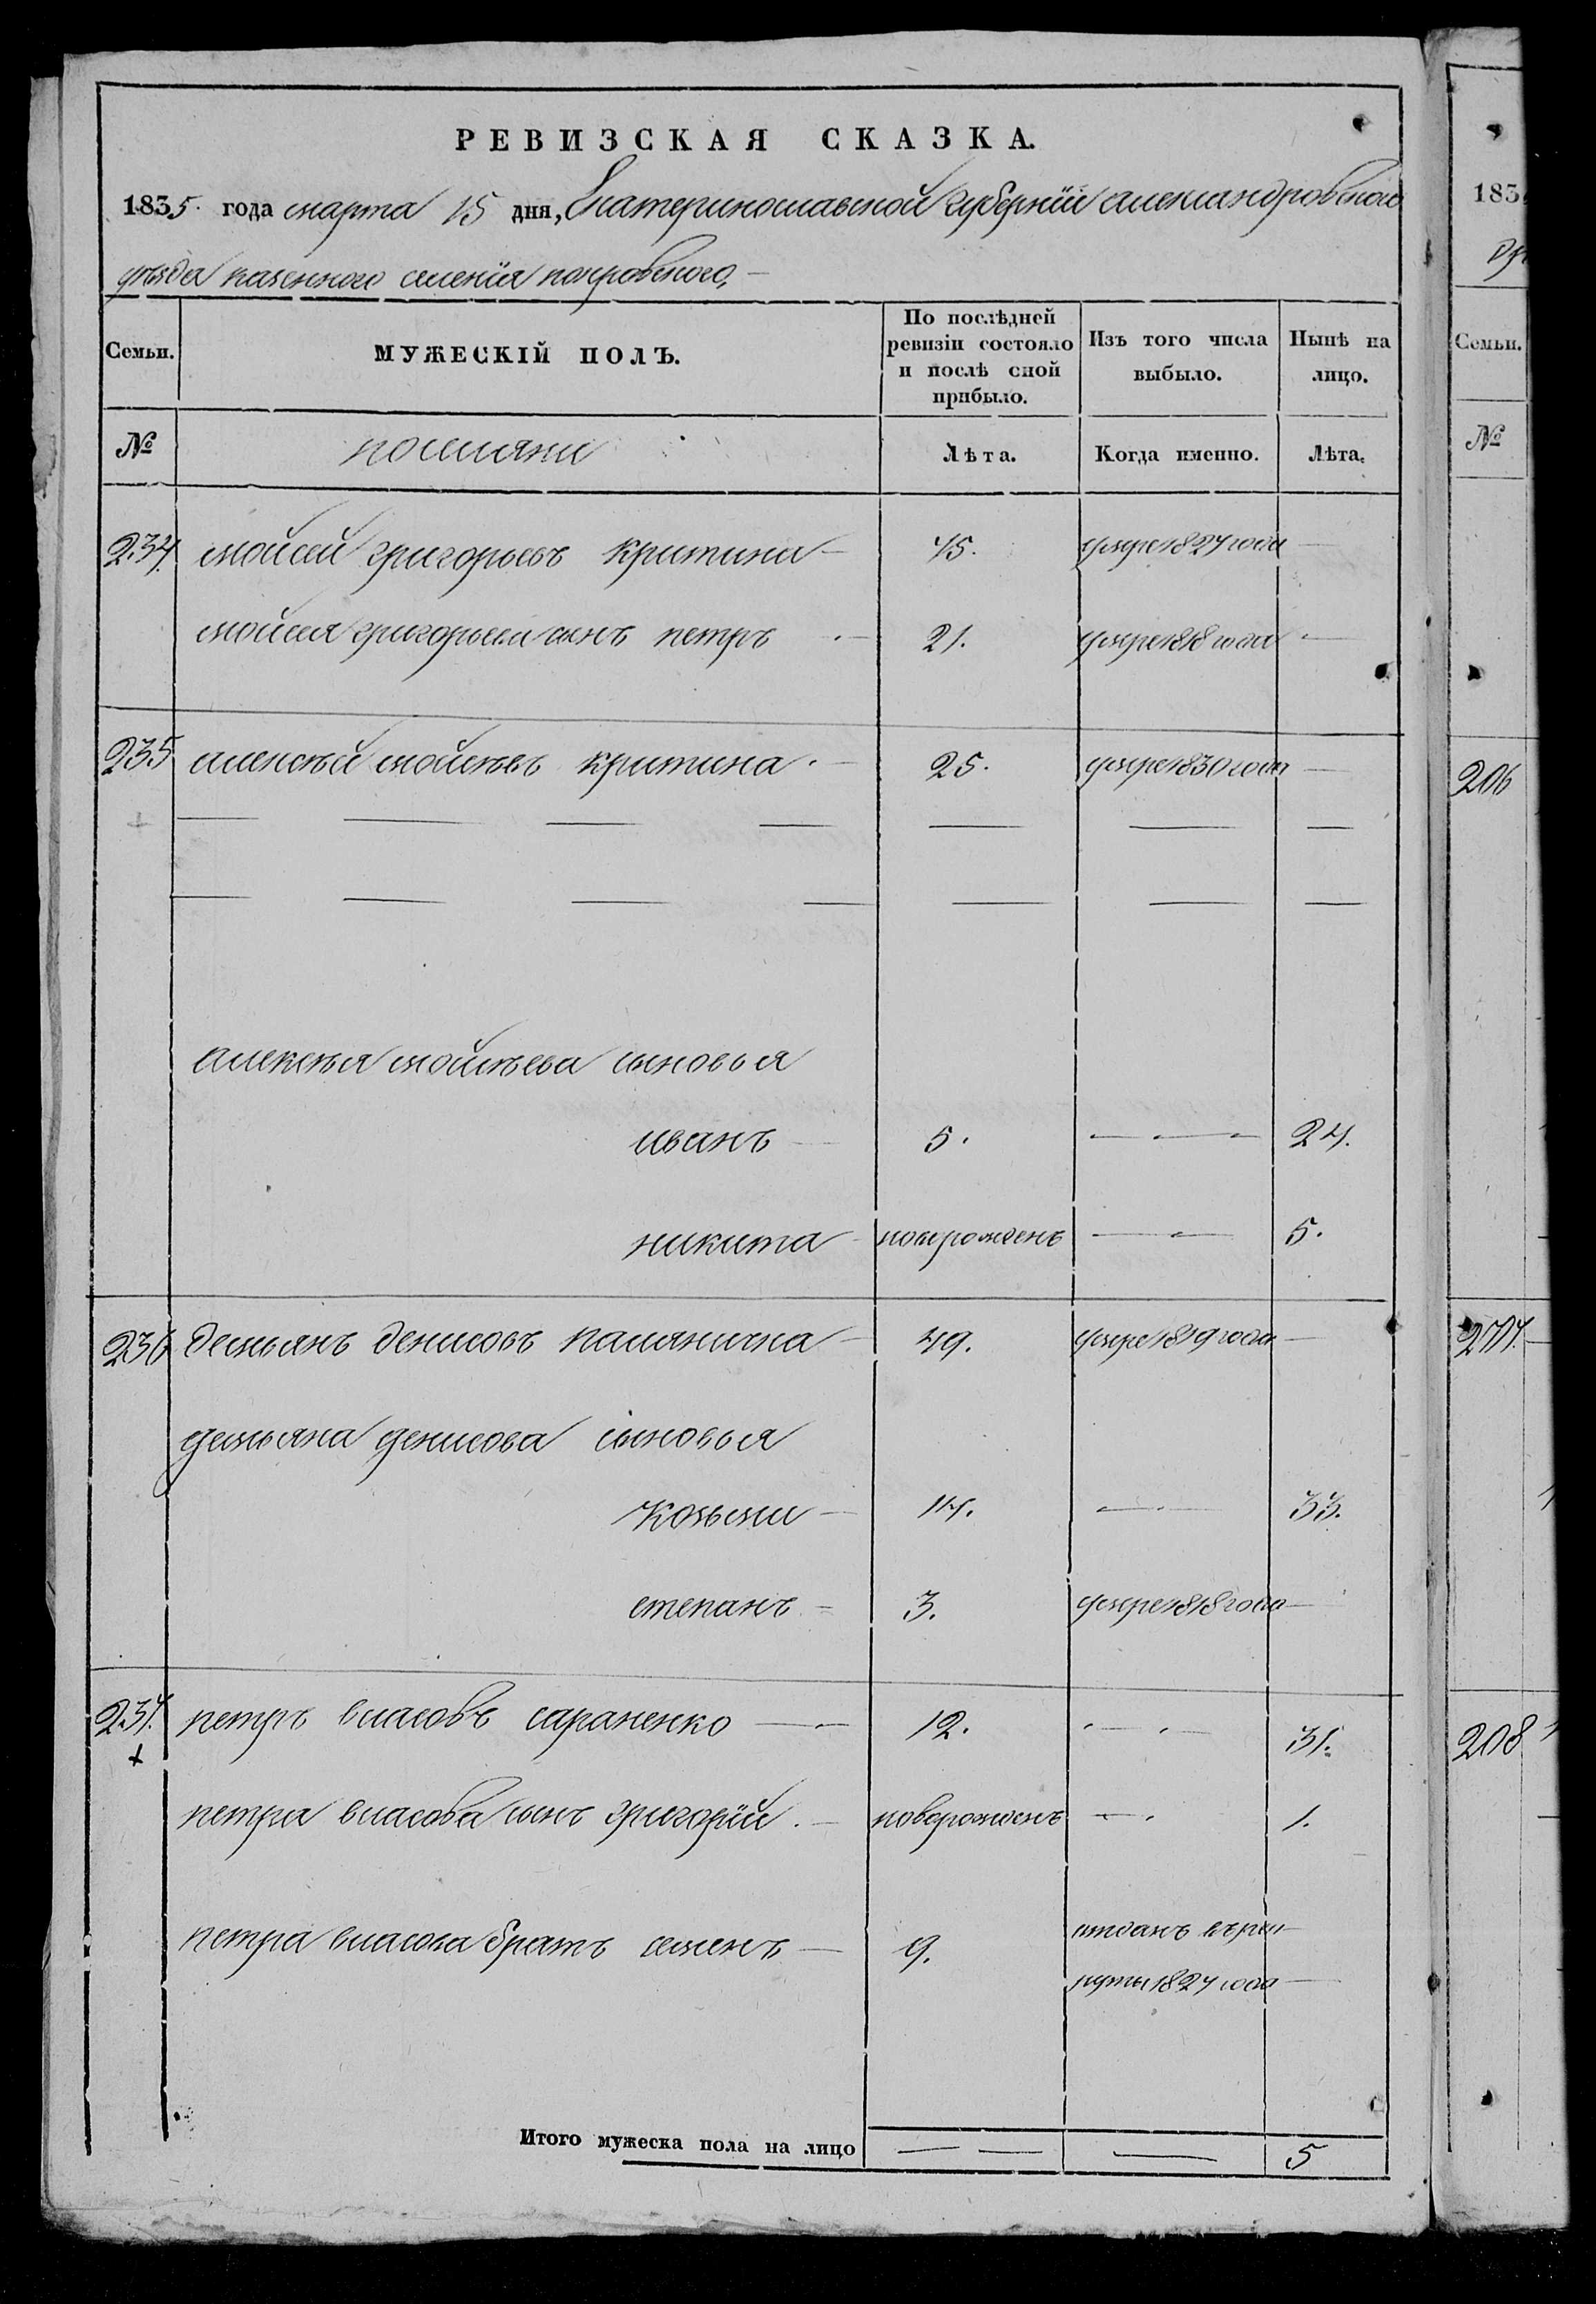 РЕВИЗСКАЯ СКАЗКА.
1835. года марта 15 дня, Екатеринославской губернїи александровского
уѣзда казенного селенїя покровского,
Семьи. МУЖЕСКІЙ ПОЛЪ. По послѣдней ревизіи состояло и послѣ оной прибыло. Изъ того числа выбыло. Нынѣ на лицо.
№ поселяни Лѣта. Когда именно. Лѣта.
234. мойсей григорьевъ критина 45. умре 1827 года
мойсея григорьева сынъ петръ 21. умре 1818 года
235 алексѣй мойсѣевъ критина 25. умре 1830 года
алексѣя мойсѣева сыновья
иванъ 5. 24.
никита новорожденъ 5.
236 демьянъ денисовъ паляничка 49. умре 1819 года
демьяна денисова сыновья
козьма 14. 33.
степанъ 3. умре 1818 года
237. петръ власовъ сараненко 12. 31.
петра власова сынъ григорїй новорожденъ 1.
петра власова братъ семенъ 9. отданъ върек
руты 1827 года
Итого мужеска пола на лицо 5
183
Семьи.
№
206
207.
208